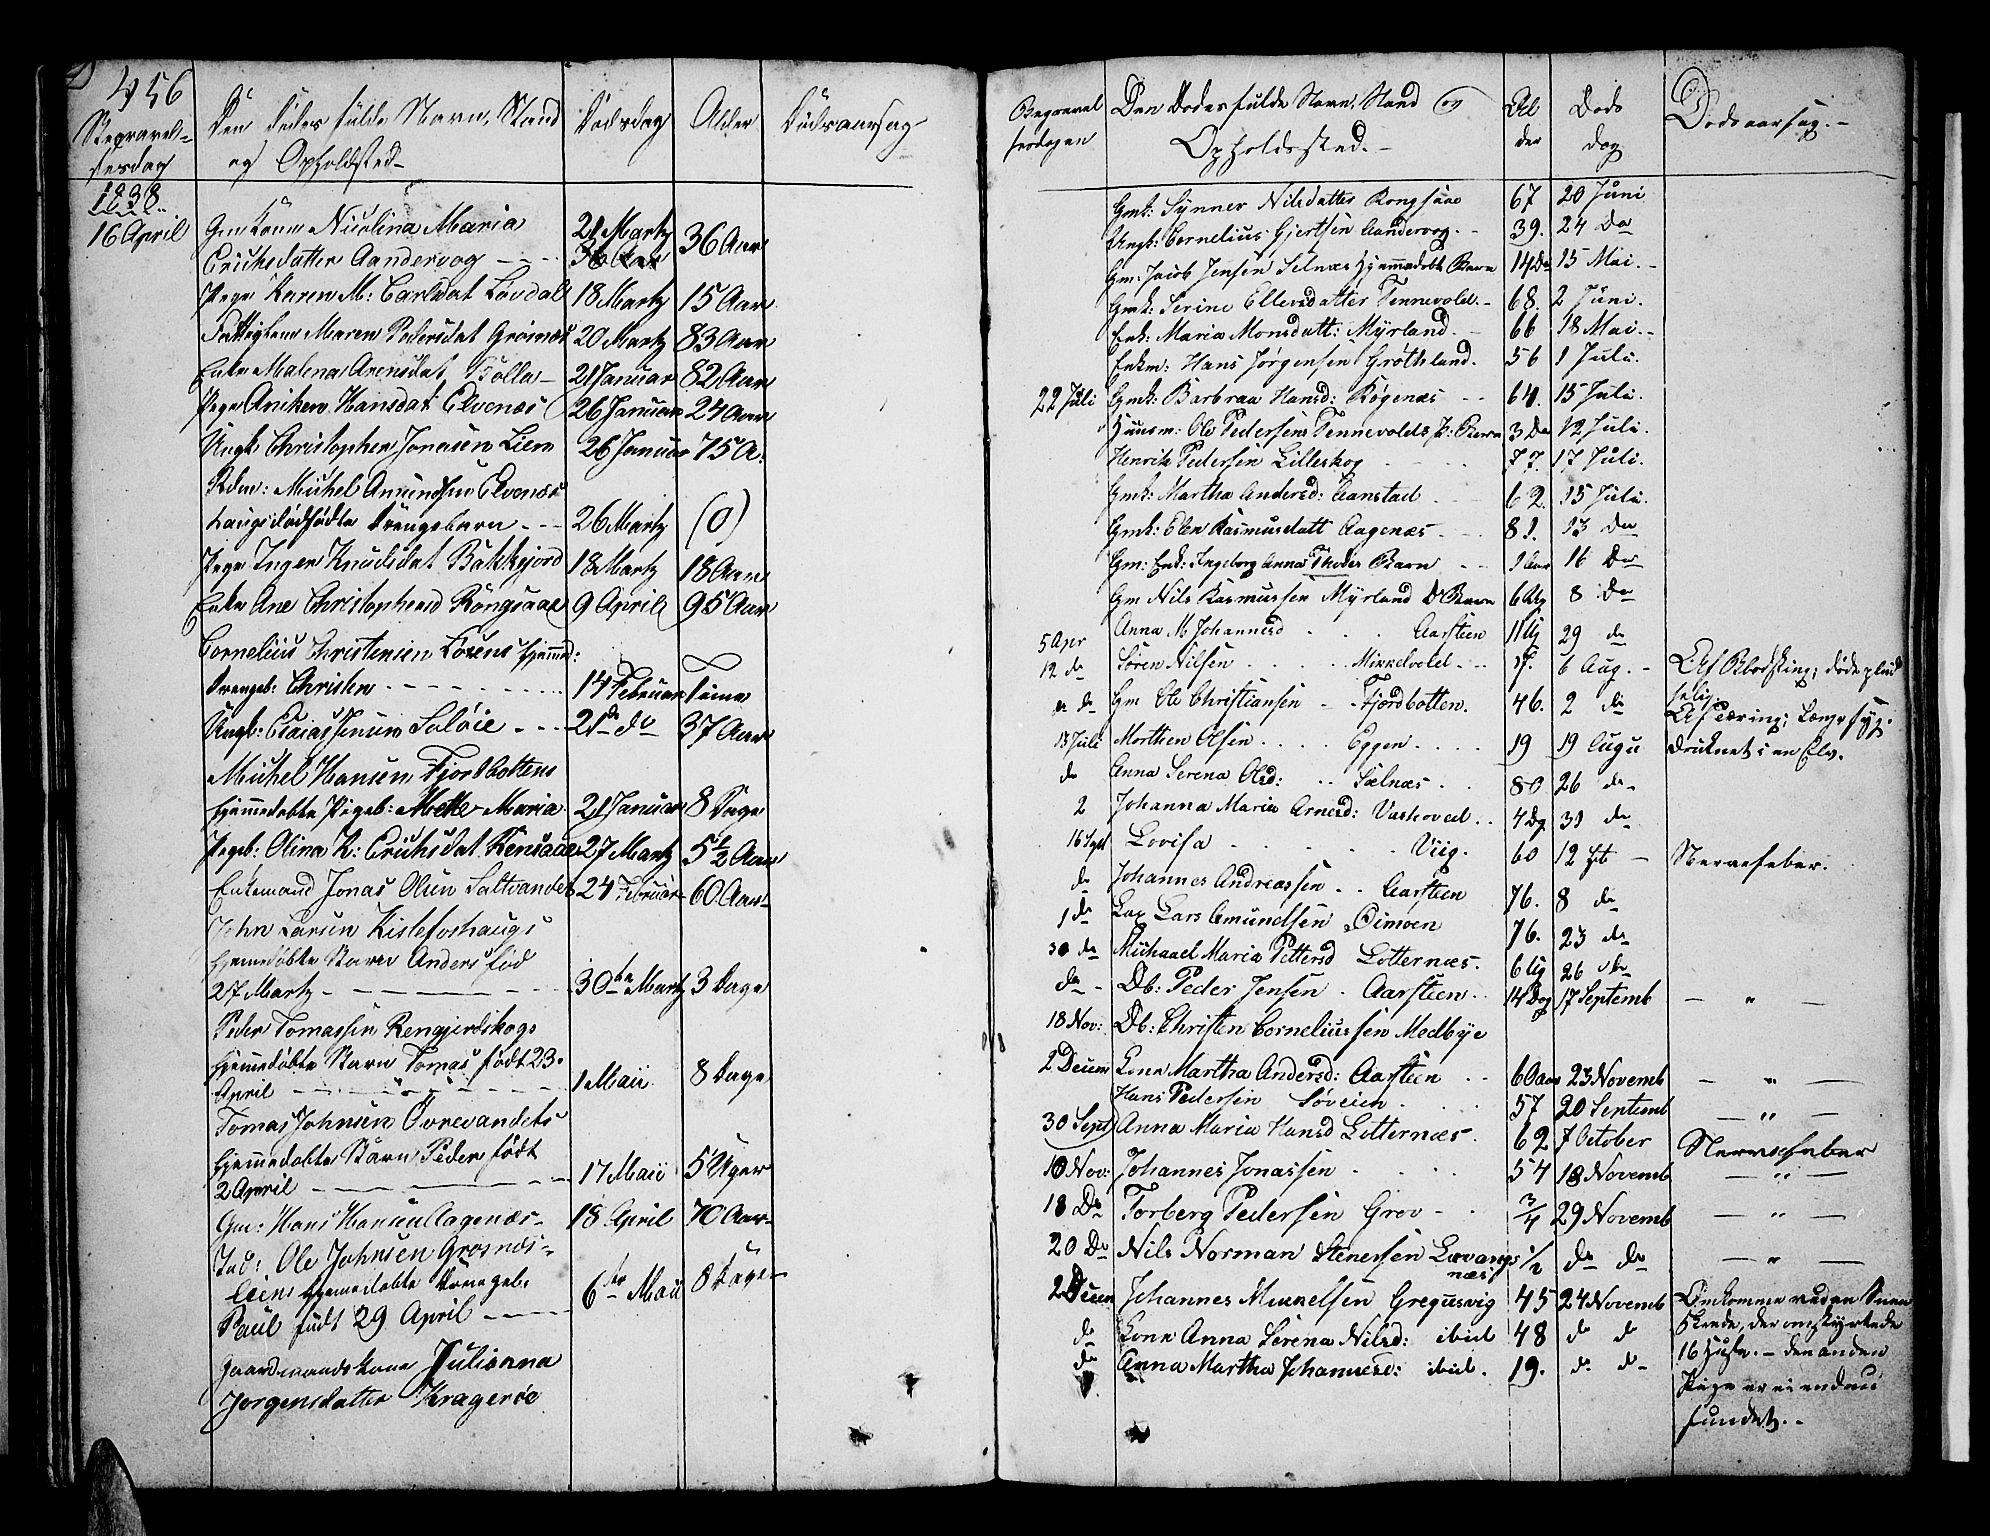 456
Begravel-
sesdag
Den Dødes fulde Navn, Stand
og Opholdsted
Dødsdag
Alder
Dødsaarsag
1838
16 April
Gm: Kone Nicolina Maria
Erichsdatter Aandervog - - -
21 Martz
36 Aar
Pige Karen M: Carlsdat Løvdal
18 Martz
15 Aar
Fattiglem Maren Pedersdat Grosnæs
20 Martz
83 Aar
Enke Malena Arensdat Tolla
21 Januar
82 Aar
Pige Aniken Hansdat Elvenæs
26 Januar
24 Aar
Ungk: Christopher Jonasen Lien
26 Januar
75 A:
Rdm: Michel Amundsen Elvenæs
Laugs dødfødte Drengebarn - - -
26 Martz
(0)
Pige Inger Knudsdat Bakkejord
18 Martz
18 Aar
Enke Ane Christophersd Rongsaae
9 April
95 Aar
Cornelius Christensen Løsens hjemmed:
Drengeb: Christen - - - - - -
14 Februar
Ungk: Esaias Jensen Saløie - - -
21de do
37 Aar
Michel Hansen Fjordbottens
hjemmedøbte Pigeb: Mette Maria
21 Januar
8 Dage
Pigeb: Olina K: Erichsdat Rensaae
27 Martz
5 1/2 Aar
Enkemand Jonas Olsen Saltvandet
24 Februar
60 Aar
John Larsen Kisteforhaugs
hjemmedøbte Barn Anders født
27 Martz - - - - - -
30te Martz
3 Dage
Peder Tomassen Rengjerdskogs
hjemmedøbte Barn Tomas født 23
April - - - - - -
1 Maii
8 Dage
Tomas Johnsen Øvrevandets
hjemmedøbte Barn Peder født
2 April - - - - - -
17 Maii
5 Uger
Gm: Hans Hansen Aagenæs -
18 April
70 Aar
Ole Johnsen Grosnæs-
hjemmedøbte Drengeb:
Paul født 29 April - - -
6te Maii
8 Dage
Gaardmandskone Julianna
Jørgensdatter Kragerøe
Begravel
sesdagen
Den Dødes fulde Navn, Stand og
Opholdssted. -
Al
der
Døds
dag
Dødsaarsag. -
Gmk: Synner Nilsdatter Rongsaae
67
20 Juni
Ungk: Cornelius Gjertsen Aandervog. -
39.
24 Do
Gm: Jacob Jensen Selnæs Hjemmedøbte Barn
14 Da
15 Mai. -
Gmk: Serine Ellevsdatter Tennevold. -
68.
2 Juni.
Enk: Maria Monsdatt: Myrland. -
66
18 Mai. -
Enkm: Hans Jørgensen Grøthland.
56
1 Juli.
22 Juli
Gmk: Barbraa Hansd: Køgenæs - -
64.
15 Juli.
Huusm: Ole Pedersens Tennevolds H: Barn
3 Da
12 Juli.
Henrik Pedersen Lilleskog - - -
77.
17 Juli.
Gmk: Martha Andersd: Aanstad - -
62.
15 Juli.
Gmk: Elen Rasmusdatt Aagenæs - - -
81.
13 Do
Gm: Enk: Ingeborg Anna Thodes Barn - -
1 Aar
16 Do
Gm Nils Rasmussen Myrland D Barn
6 Ug
8 Do
5 Apr
Anna M Johannesd . . . Aarsteen
11 Ug
29 do
12 do
Søren Nilsen . . . . Mikkelvold - - -
6 Aug. -
Af Blodsting; døde plud
selig.
do
Gm Ole Christiansen - - Fjordbotten.
46.
2 do
Af Tæring; Længe syg.
15 Juli
Morthen Olsen . . . . Eggen . . . .
19
19 Augu
druknet i en Elv.
do
Anna Serena Olsd: . . Sælnæs . .
80
26 do
2
Johanna Maria Arnesd: Vashoved . .
4 Dg
31 do
16 Spt
Lovisa . . . . . . Viig.
60
12 Spt -
Nervefeber.
do
Johannes Andreassen . . Aarsteen
76.
8 do
1 do
Lars Amundsen Dimoen
76.
23 do
30 do
Michaael Maria Pettersd Lotternæs.
6 Ug
26 do
do -
Db: Peder Jensen . Aarsteen . .
14 Dag
17 Septemb
- " -
18 Nov:
Db: Christen Corneliussen Medbye
2 Decem
Kone Martha Andersd: Aarsteen . .
60 aar
23 Novemb
- " -
Hans Pedersen Søveien . . . .
57
20 Septemb
- " -
30 Sept
Anna Maria Hansd Lotternæs.
62
7 October
Nervefeber
10 Nov:
Johannes Jonassen . . . .
54
18 Novemb
- " -
18 Do
Torberg Pedersen Grov - .
3/4
29 Novemb
- " -
20 Do
Nils Norman Stenersen Lavangs
næs
1/2
do do
- " -
2 Decem
Johannes Mikkelsen Gregusvig
45
24 Novemb
Omkomne ved en Snee
do
Kone Anna Serena Nilsd: ibid
48
do do
Skrede, der omstyrtede
do
Anna Martha Johannesd: ibid.
19.
do do
16 Huse. - den anden
Pige er ei endnu
fundet. -